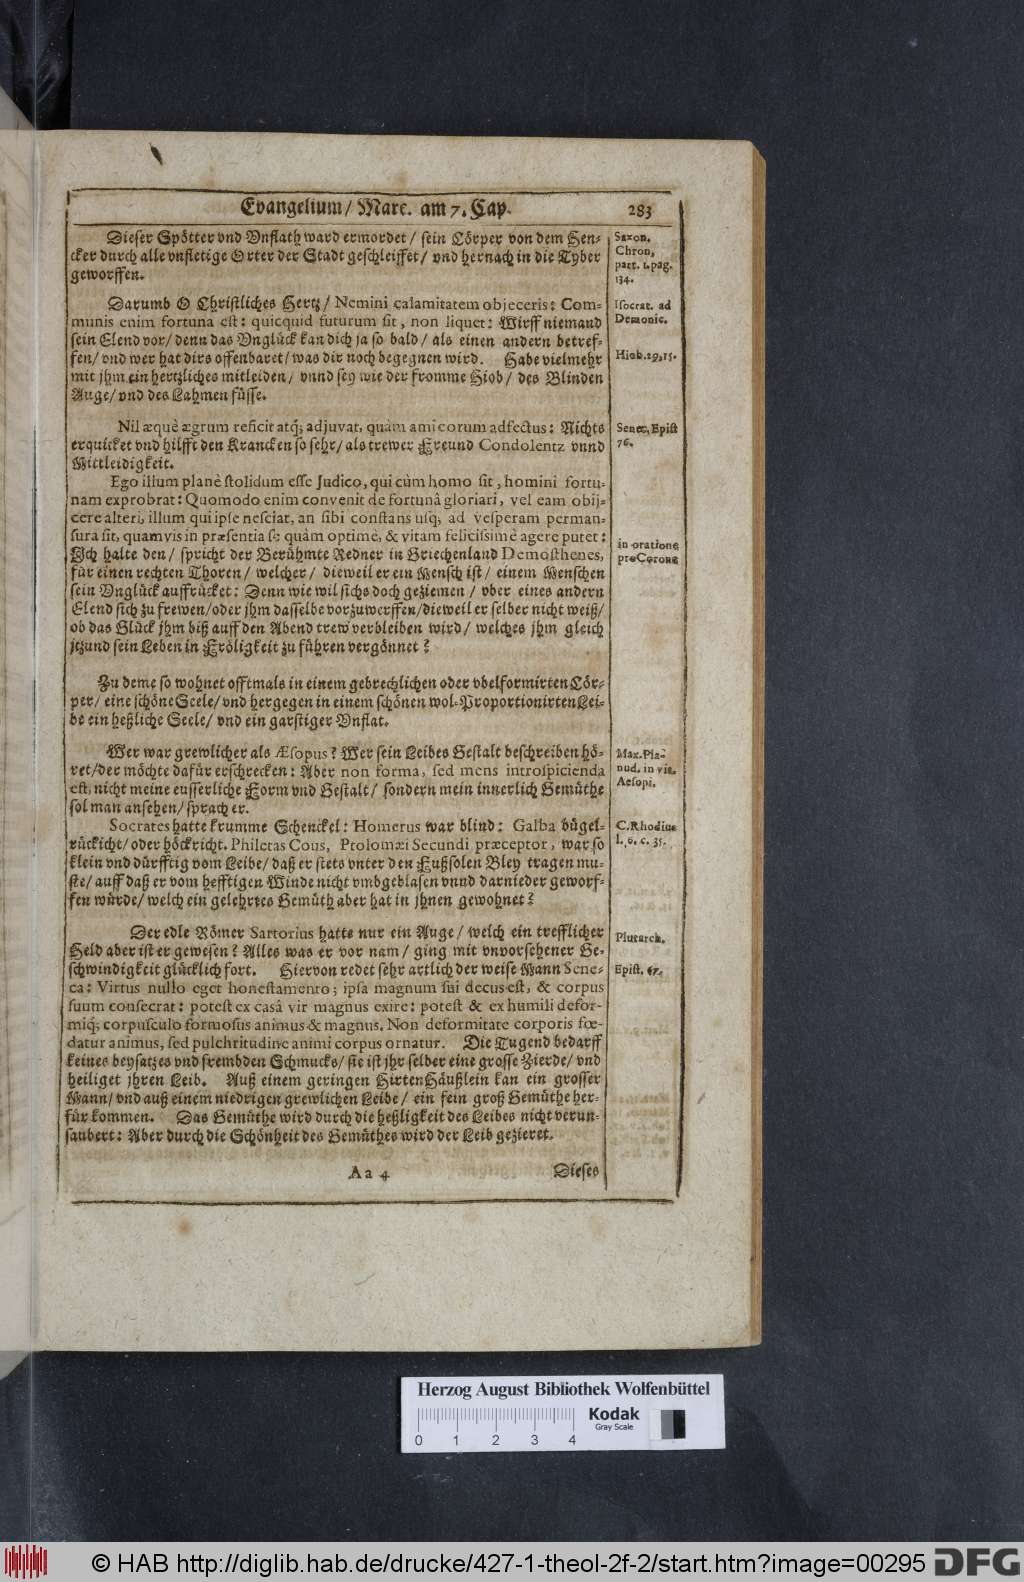 Evangelium/ Marc. am 7. Cap. 283
Dieser Spötter vnd Vnflath ward ermordet/ sein Cörper von dem Hen-
cker durch alle vnfletige Orter der Stadt geschleiffet/ vnd hernach in die Tyber
geworffen.
Saxon.
Chron,
part. 1. pag.
134.
Darumb O Christliches Hertz/ Nemini calamitatem objeceris: Com-
munis enim fortuna est: quicquid futurum sit, non liquet: Wirff niemand
sein Elend vor/ denn das Vnglück kan dich ja so bald/ als einen andern betref-
fen/ vnd wer hat dirs offenbaret/ was dir noch begegnen wird. Habe vielmehr
mit jhm ein hertzliches mitleiden/ vnnd sey wie der fromme Hiob/ des Blinden
Auge/ vnd des Lahmen füsse.
Isocrat. ad
Demonic.
Hiob. 29, 15.
Nil æquè ægrum reficit atq; adjuvat, quàm amicorum adfectus: Nichts
erquicket vnd hilfft den Krancken so sehr/ als trewer Freund Condolentz vnnd
Mittleidigkeit.
Senec, Epist
76.
Ego illum planè stolidum esse Judico, qui cùm homo sit, homini fortu-
nam exprobrat: Quomodo enim convenit de fortunâ gloriari, vel eam obij-
cere alteri, illum qui ipse nesciat, an sibi constans usq; ad vesperam perman-
sura sit, quamvis in præsentia se quàm optimè, & vitam felicissimè agere putet:
Ich halte den/ spricht der Berühmte Redner in Griechenland Demosthenes,
für einen rechten Thoren/ welcher/ dieweil er ein Mensch ist/ einem Menschen
sein Vnglück auffrücket: Denn wie wil sichs doch geziemen/ vber eines andern
Elend sich zu frewen/ oder jhm dasselbe vorzuwerffen/ dieweil er selber nicht weiß/
ob das Glück jhm biß auff den Abend trew verbleiben wird/ welches jhm gleich
jtzund sein Leben in Fröligkeit zu führen vergönnet?
in oratione
pro Corona
Zu deme so wohnet offtmals in einem gebrechlichen oder vbelformirten Cör-
per/ eine schöne Seele/ vnd hergegen in einem schönen wol-Proportionirten Lei-
be ein heßliche Seele/ vnd ein garstiger Vnflat.
Wer war grewlicher als Æsopus? Wer sein Leibes Gestalt beschreiben hö-
ret/ der möchte dafür erschrecken: Aber non forma, sed mens introspicienda
est, nicht meine eusserliche Form vnd Gestalt/ sondern mein innerlich Gemüthe
sol man ansehen/ sprach er.
Max. Pla-
nud. in vit.
Aesopi.
Socrates hatte krumme Schenckel: Homerus war blind: Galba bügel-
rückicht/ oder höckricht. Philetas Cous, Ptolomæi Secundi præceptor, war so
klein vnd dürfftig vom Leibe/ daß er stets vnter den Fußsolen Bley tragen mu-
ste/ auff daß er vom hefftigen Winde nicht vmbgeblasen vnnd darnieder geworf-
fen würde/ welch ein gelehrtes Gemüth aber hat in jhnen gewohnet?
C. Rhodius
l. 6. c. 35.
Der edle Römer Sartorius hatte nur ein Auge/ welch ein trefflicher
Held aber ist er gewesen? Alles was er vor nam/ ging mit vnvorsehener Ge-
schwindigkeit glücklich fort. Hiervon redet sehr artlich der weise Mann Sene-
ca: Virtus nullo eget honestamento; ipsa magnum sui decus est, & corpus
suum consecrat: potest ex casâ vir magnus exire: potest & ex humili defor-
miq; corpusculo formosus animus & magnus. Non deformitate corporis fœ-
datur animus, sed pulchritudine animi corpus ornatur. Die Tugend bedarff
keines beysatzes vnd frembden Schmucks/ sie ist jhr selber eine grosse Zierde/ vnd
heiliget jhren Leib. Auß einem geringen Hirten Häußlein kan ein grosser
Mann/ vnd auß einem niedrigen grewlichen Leibe/ ein fein groß Gemüthe her-
für kommen. Das Gemüthe wird durch die heßligkeit des Leibes nicht verun-
saubert: Aber durch die Schönheit des Gemüthes wird der Leib gezieret.
Plutarch.
Epist. 67.
Aa 4 Dieses
Herzog August Bibliothek Wolfenbüttel
Kodak
Gray Scale
0 1 2 3 4
© HAB http://diglib.hab.de/drucke/427-1-theol-2f-2/start.htm?image=00295 DFG